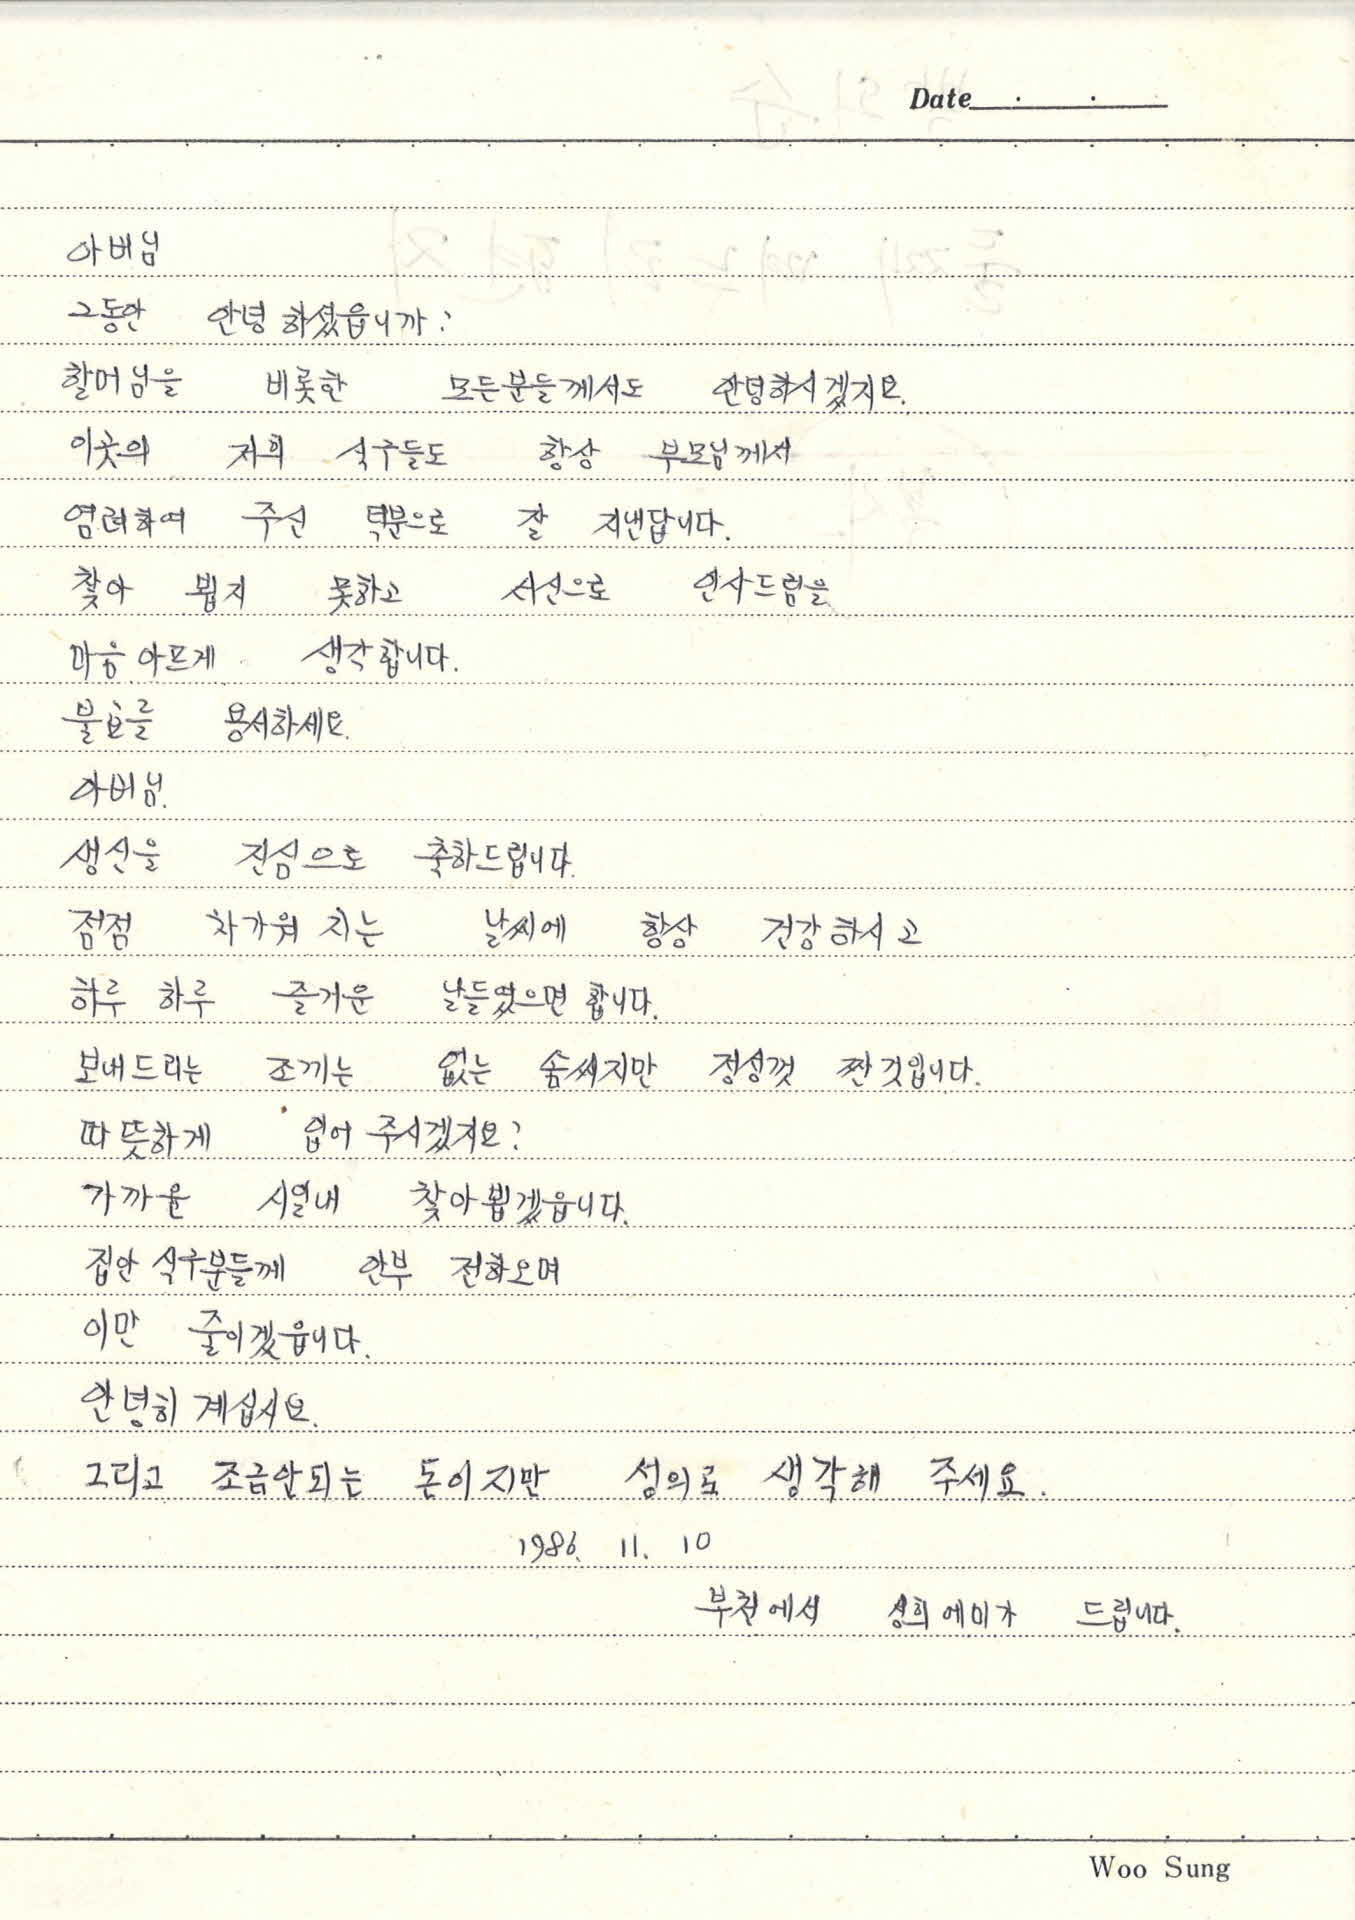 Date
아버님
그동안 안녕 하셨읍니까?
할머님을 비롯한 모든분들께서도 안녕하시겠지요.
이곳의 저희 식구들도 항상 부모님께서
염려하여 주신 덕분으로 잘 지낸답니다.
찾아 뵙지 못하고 서신으로 인사드림을
마음 아프게 생각합니다.
불효를 용서하세요.
아버님.
생신을 진심으로 축하드립니다.
점점 차가워 지는 날씨에 항상 건강하시고
하루 하루 즐거운 날들였으면 합니다.
보내드리는 조끼는 없는 솜씨지만 정성껏 짠것입니다.
따뜻하게 입어 주시겠지요?
가까운 시일내 찾아뵙겠읍니다.
집안 식구분들께 안부 전하오며
이만 줄이겠읍니다.
안녕히 계십시요.
그리고 조금안되는 돈이지만 성의로 생각해 주세요.
1986. 11. 10
부천에서 성희에미가 드립니다.
Woo Sung